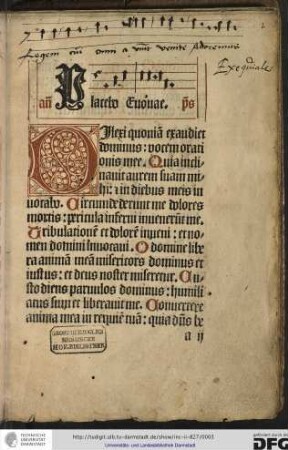 Regem cui omnia vivunt venite adoremus
Exequiale
añ Placebo Euouae. ps
Dilexi quoniã exaudiet
dominus: vocem orati
onis mee. Quia incli
nauit aurem suam mi
hi: z in diebus meis in
uocabo. Circumdederunt me dolores
mortis: pericula inferni inuenerũt me.
Tribulationẽ et dolorẽ inueni: et no
men domini inuocaui. O domine libe
ra animã meã misericors dominus et
iustus: et deus noster miseretur. Cu
stodiens paruulos dominus: humili
atus sum et liberauit me. Conuertere
anima mea in requiẽ tuã: quia dñs be
a ij
TECHNISCHE
UNIVERSITÄT
DARMSTADT
http://tudigit.ulb.tu-darmstadt.de/show/inc-ii-827/0003
Universitäts- und Landesbibliothek Darmstadt
gefördert durch die
DFG